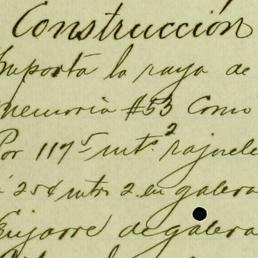 Construcción
Importa la raya de
memoria #53 Como
Por 117⁵ mts² rajuele
á 25¢ mtr 2 en galera
Guijarro de galera